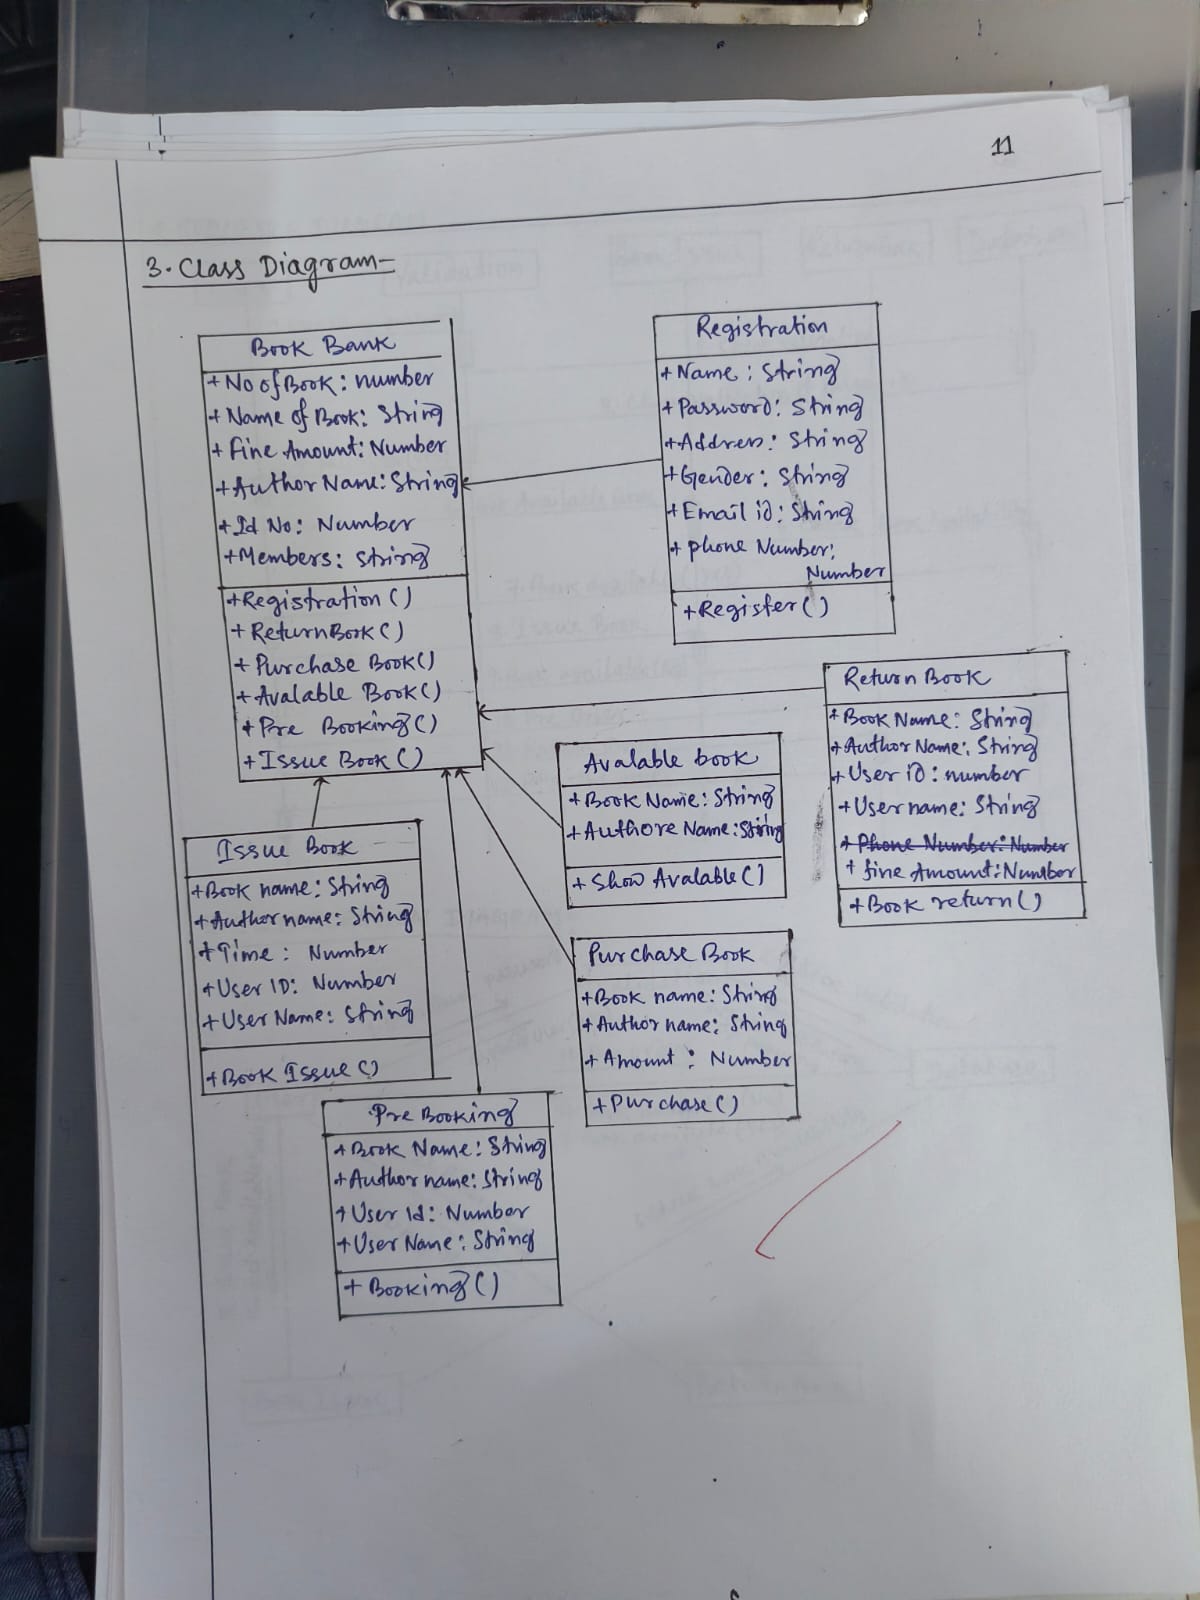 11
3. Class Diagram-
Book Bank
+ No of Book: number
+ Name of Book: String
+ Fine Amount: Number
+ Author Name: String
+ Id No: Number
+ Members: String
+ Registration ()
+ ReturnBook ()
+ Purchase Book()
+ Avalable Book()
+ Pre Booking()
+ Issue Book ()
Registration
+ Name : String
+ Password: String
+ Address: String
+ Gender: String
+ Email id: String
+ phone Number:
Number
+ Register()
Return Book
+ Book Name: String
+ Author Name: String
+ User id: number
+ User name: String
+ Phone Number: Number
+ fine Amount: Number
+ Book return()
Avalable book
+ Book Name: String
+ Authore Name: String
+ Show Avalable()
Issue Book
+ Book name: String
+ Author name: String
+ Time : Number
+ User ID: Number
+ User Name: String
+ Book Issue ()
Purchase Book
+ Book name: String
+ Author name: String
+ Amount : Number
+ Purchase()
Pre Booking
+ Book Name: String
+ Author name: String
+ User Id: Number
+ User Name: String
+ Booking()